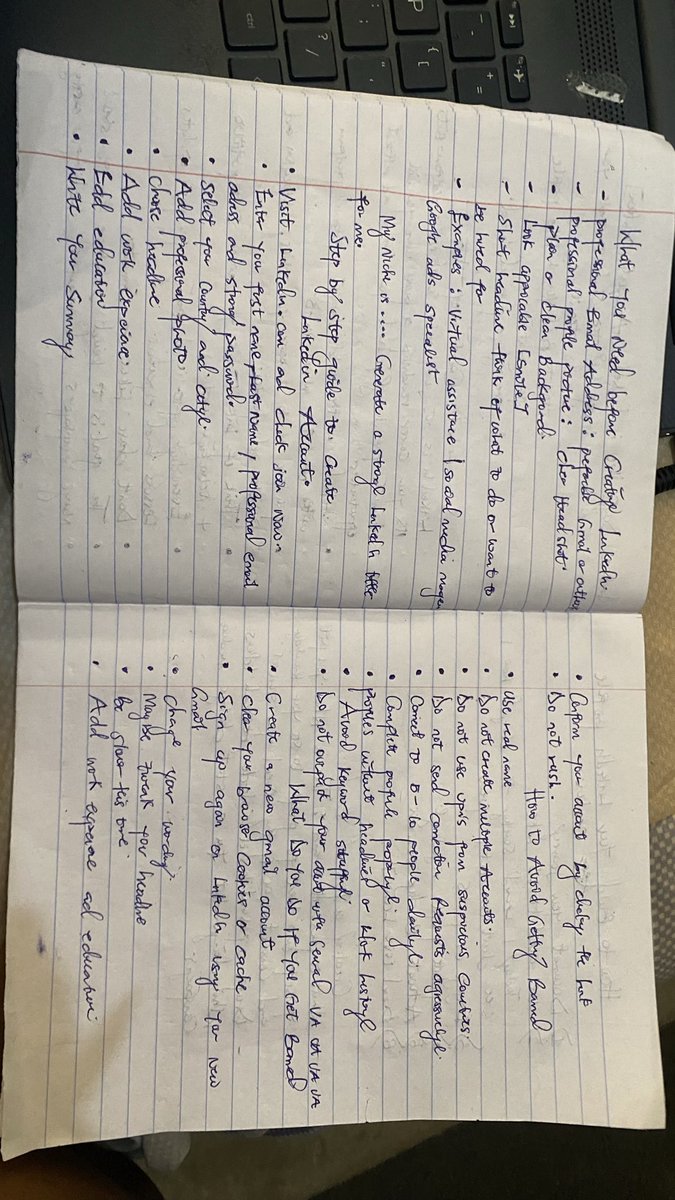 What You Need before Creating LinkedIn
- professional Email Address: preferable Gmail or other
- professional profile picture: Clear Headshot.
• plain or clean Background.
- Look approcable [smile]
- Short headline - think of what to do or want to
be hired for
- Examples: Virtual assistance | social media manager
Google ads specialist
My Niche is .... Generate a strong LinkedIn
for me.
Step by step guide to Create
LinkedIn Account.
• Visit LinkedIn.com and click join Now.
• Enter you first name, Last Name, professional email
adress and strong password.
• Select you Country and city.
• Add professional photo.
• Chose headline
• Add work experience.
• Edd education
• Write your Summary
• Confirm your account by clicking the link
• Do not rush.
How to Avoid Getting Banned
• Use real name
• Do not create multiple Accounts.
• Do not use vpns from suspicious Countries.
• Do not send connection Requests aggressively.
• Connect to 5-10 people daily.
• Complete profile properly.
• profiles without headline or work history
• Avoid keyword stuffing.
• Do not overpack your account with several VA VA VA VA
What Do You Do If You Get Banned
• Create a new gmail account
• Clear your browser Cookies or cache
• Sign up again on LinkedIn using your New
Gmail
• Change your wording.
• Maybe tweak you headline
• be slower this time.
• Add work experience and education.